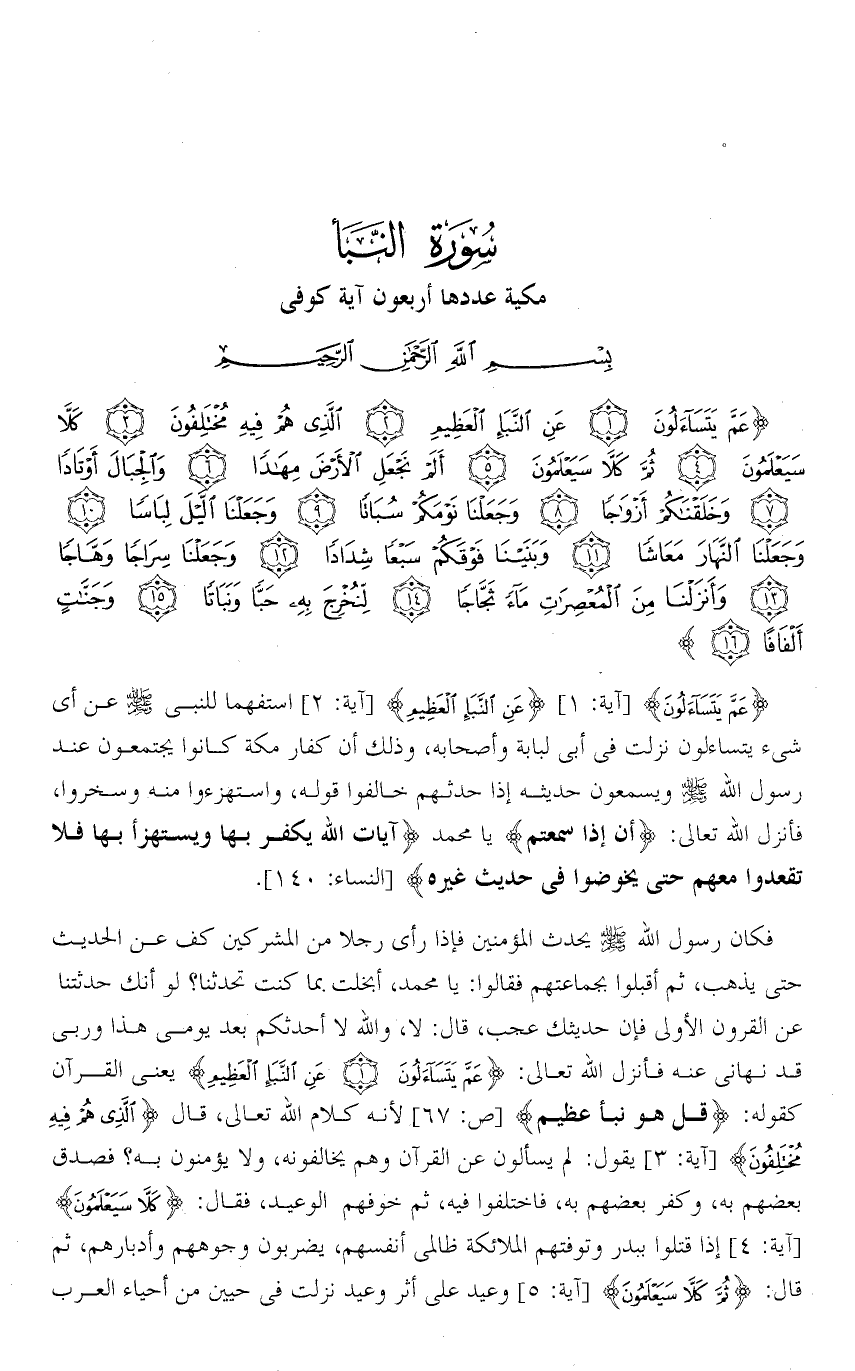 سُورَةُ النَّبَأ
مكية عددها أربعون آية كوفى
بِسْمِ ٱللَّهِ ٱلرَّحْمَٰنِ ٱلرَّحِيمِ
﴿عَمَّ يَتَسَآءَلُونَ ١ عَنِ ٱلنَّبَإِ ٱلْعَظِيمِ ٢ ٱلَّذِى هُمْ فِيهِ مُخْتَلِفُونَ ٣ كَلَّا
سَيَعْلَمُونَ ٤ ثُمَّ كَلَّا سَيَعْلَمُونَ ٥ أَلَمْ نَجْعَلِ ٱلْأَرْضَ مِهَٰدًا ٦ وَٱلْجِبَالَ أَوْتَادًا
٧ وَخَلَقْنَٰكُمْ أَزْوَٰجًا ٨ وَجَعَلْنَا نَوْمَكُمْ سُبَاتًا ٩ وَجَعَلْنَا ٱلَّيْلَ لِبَاسًا ١٠
وَجَعَلْنَا ٱلنَّهَارَ مَعَاشًا ١١ وَبَنَيْنَا فَوْقَكُمْ سَبْعًا شِدَادًا ١٢ وَجَعَلْنَا سِرَاجًا وَهَّاجًا
١٣ وَأَنزَلْنَا مِنَ ٱلْمُعْصِرَٰتِ مَآءً ثَجَّاجًا ١٤ لِّنُخْرِجَ بِهِۦ حَبًّا وَنَبَاتًا ١٥ وَجَنَّٰتٍ
أَلْفَافًا ١٦ ﴾
﴿عَمَّ يَتَسَآءَلُونَ﴾ [آية: ١] ﴿عَنِ ٱلنَّبَإِ ٱلْعَظِيمِ﴾ [آية: ٢] استفهما للنبى ﷺ عن أى
شىء يتساءلون نزلت فى أبى لبابة وأصحابه، وذلك أن كفار مكة كانوا يجتمعون عند
رسول الله ﷺ ويسمعون حديثه إذا حدثهم خالفوا قوله، واستهزءوا منه وسخروا،
فأنزل الله تعالى: ﴿أن إذا سمعتم﴾ يا محمد ﴿آيات الله يكفر بها ويستهزأ بها فلا
تقعدوا معهم حتى يخوضوا فى حديث غيره﴾ [النساء: ١٤٠].
فكان رسول الله ﷺ يحدث المؤمنين فإذا رأى رجلا من المشركين كف عن الحديث
حتى يذهب، ثم أقبلوا بجماعتهم فقالوا: يا محمد، أبخلت بما كنت تحدثنا؟ لو أنك حدثتنا
عن القرون الأولى فإن حديثك عجب، قال: لا، والله لا أحدثكم بعد يومى هذا وربى
قد نهانى عنه فأنزل الله تعالى: ﴿عَمَّ يَتَسَآءَلُونَ ١ عَنِ ٱلنَّبَإِ ٱلْعَظِيمِ﴾ يعنى القرآن
كقوله: ﴿قل هو نبأ عظيم﴾ [ص: ٦٧] لأنه كلام الله تعالى، قال ﴿ٱلَّذِى هُمْ فِيهِ
مُخْتَلِفُونَ﴾ [آية: ٣] يقول: لم يسألون عن القرآن وهم يخالفونه، ولا يؤمنون به؟ فصدق
بعضهم به، وكفر بعضهم به، فاختلفوا فيه، ثم خوفهم الوعيد، فقال: ﴿كَلَّا سَيَعْلَمُونَ﴾
[آية: ٤] إذا قتلوا ببدر وتوفتهم الملائكة ظالمى أنفسهم، يضربون وجوههم وأدبارهم، ثم
قال: ﴿ثُمَّ كَلَّا سَيَعْلَمُونَ﴾ [آية: ٥] وعيد على أثر وعيد نزلت فى حيين من أحياء العرب